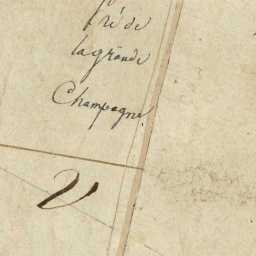 Pré de
la grande
Champagne.
V